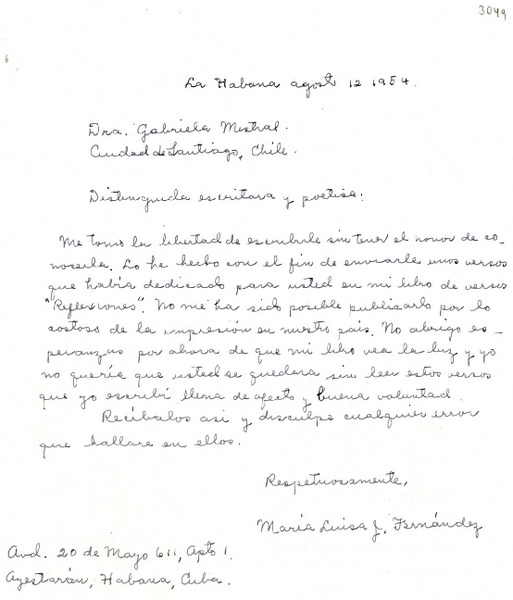 3049
La Habana agosto 12 1954.
Dra. Gabriela Mistral.
Ciudad de Santiago, Chile.
Distinguida escritora y poetisa:
Me tomo la libertad de escribirle sin tener el honor de co-
nocerla. Lo he hecho con el fin de enviarle unos versos
que había dedicado para usted en mi libro de versos
"Reflexiones". No me ha sido posible publicarlo por lo
costoso de la impresión en nuestro país. No abrigo es-
peranzas por ahora de que mi libro vea la luz y yo
no quería que usted se quedara sin leer estos versos
que yo escribí llena de afecto y buena voluntad.
Recíbalos asi y disculpe cualquier error
que hallare en ellos.
Respetuosamente,
María Luisa J. Fernández
Avd. 20 de Mayo 611, Apto 1.
Ayestarán, Habana, Cuba.